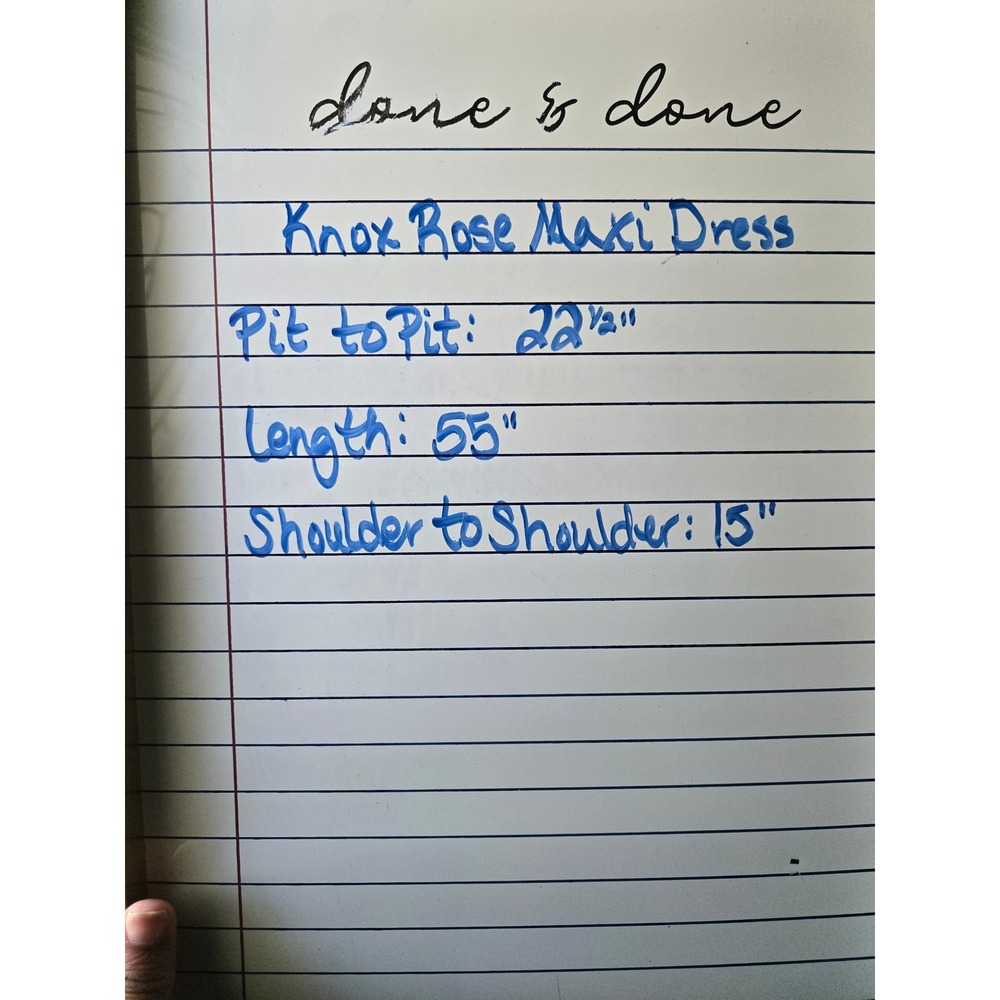 done & done
Knox Rose Maxi Dress
Pit to Pit: 22 1/2"
Length: 55"
Shoulder to Shoulder: 15"